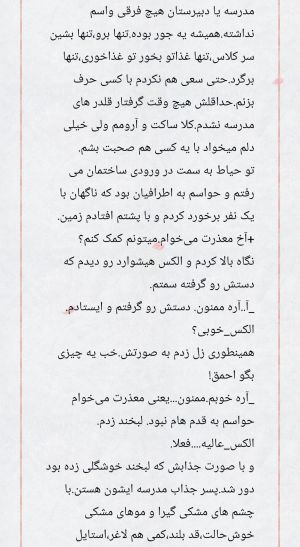 مدرسه یا دبیرستان هیچ فرقی واسم
نداشته.همیشه یه جور بوده.تنها برو،تنها بشین
سر کلاس،تنها غذاتو بخور تو غذاخوری،تنها
برگرد.حتی سعی هم نکردم با کسی حرف
بزنم.حداقلش هیچ وقت گرفتار قلدر های
مدرسه نشدم.کلا ساکت و آرومم ولی خیلی
دلم میخواد با یه کسی هم صحبت بشم.
تو حیاط به سمت در ورودی ساختمان می
رفتم و حواسم به اطرافیان بود که ناگهان با
یک نفر برخورد کردم و با پشتم افتادم زمین.
+آخ معذرت می‌خوام.میتونم کمک کنم؟
نگاه بالا کردم و الکس هیشوارد رو دیدم که
دستش رو گرفته سمتم.
_آ..آره ممنون. دستش رو گرفتم و ایستادم.
الکس_خوبی؟
همینطوری زل زدم به صورتش.خب یه چیزی
بگو احمق!
_آره خوبم.ممنون...یعنی معذرت می‌خوام
حواسم به قدم هام نبود. لبخند زدم.
الکس_عالیه....فعلا.
و با صورت جذابش که لبخند خوشگلی زده بود
دور شد.پسر جذاب مدرسه ایشون هستن.با
چشم های مشکی گیرا و موهای مشکی
خوش‌حالت،قد بلند،کمی هم لاغر،استایل